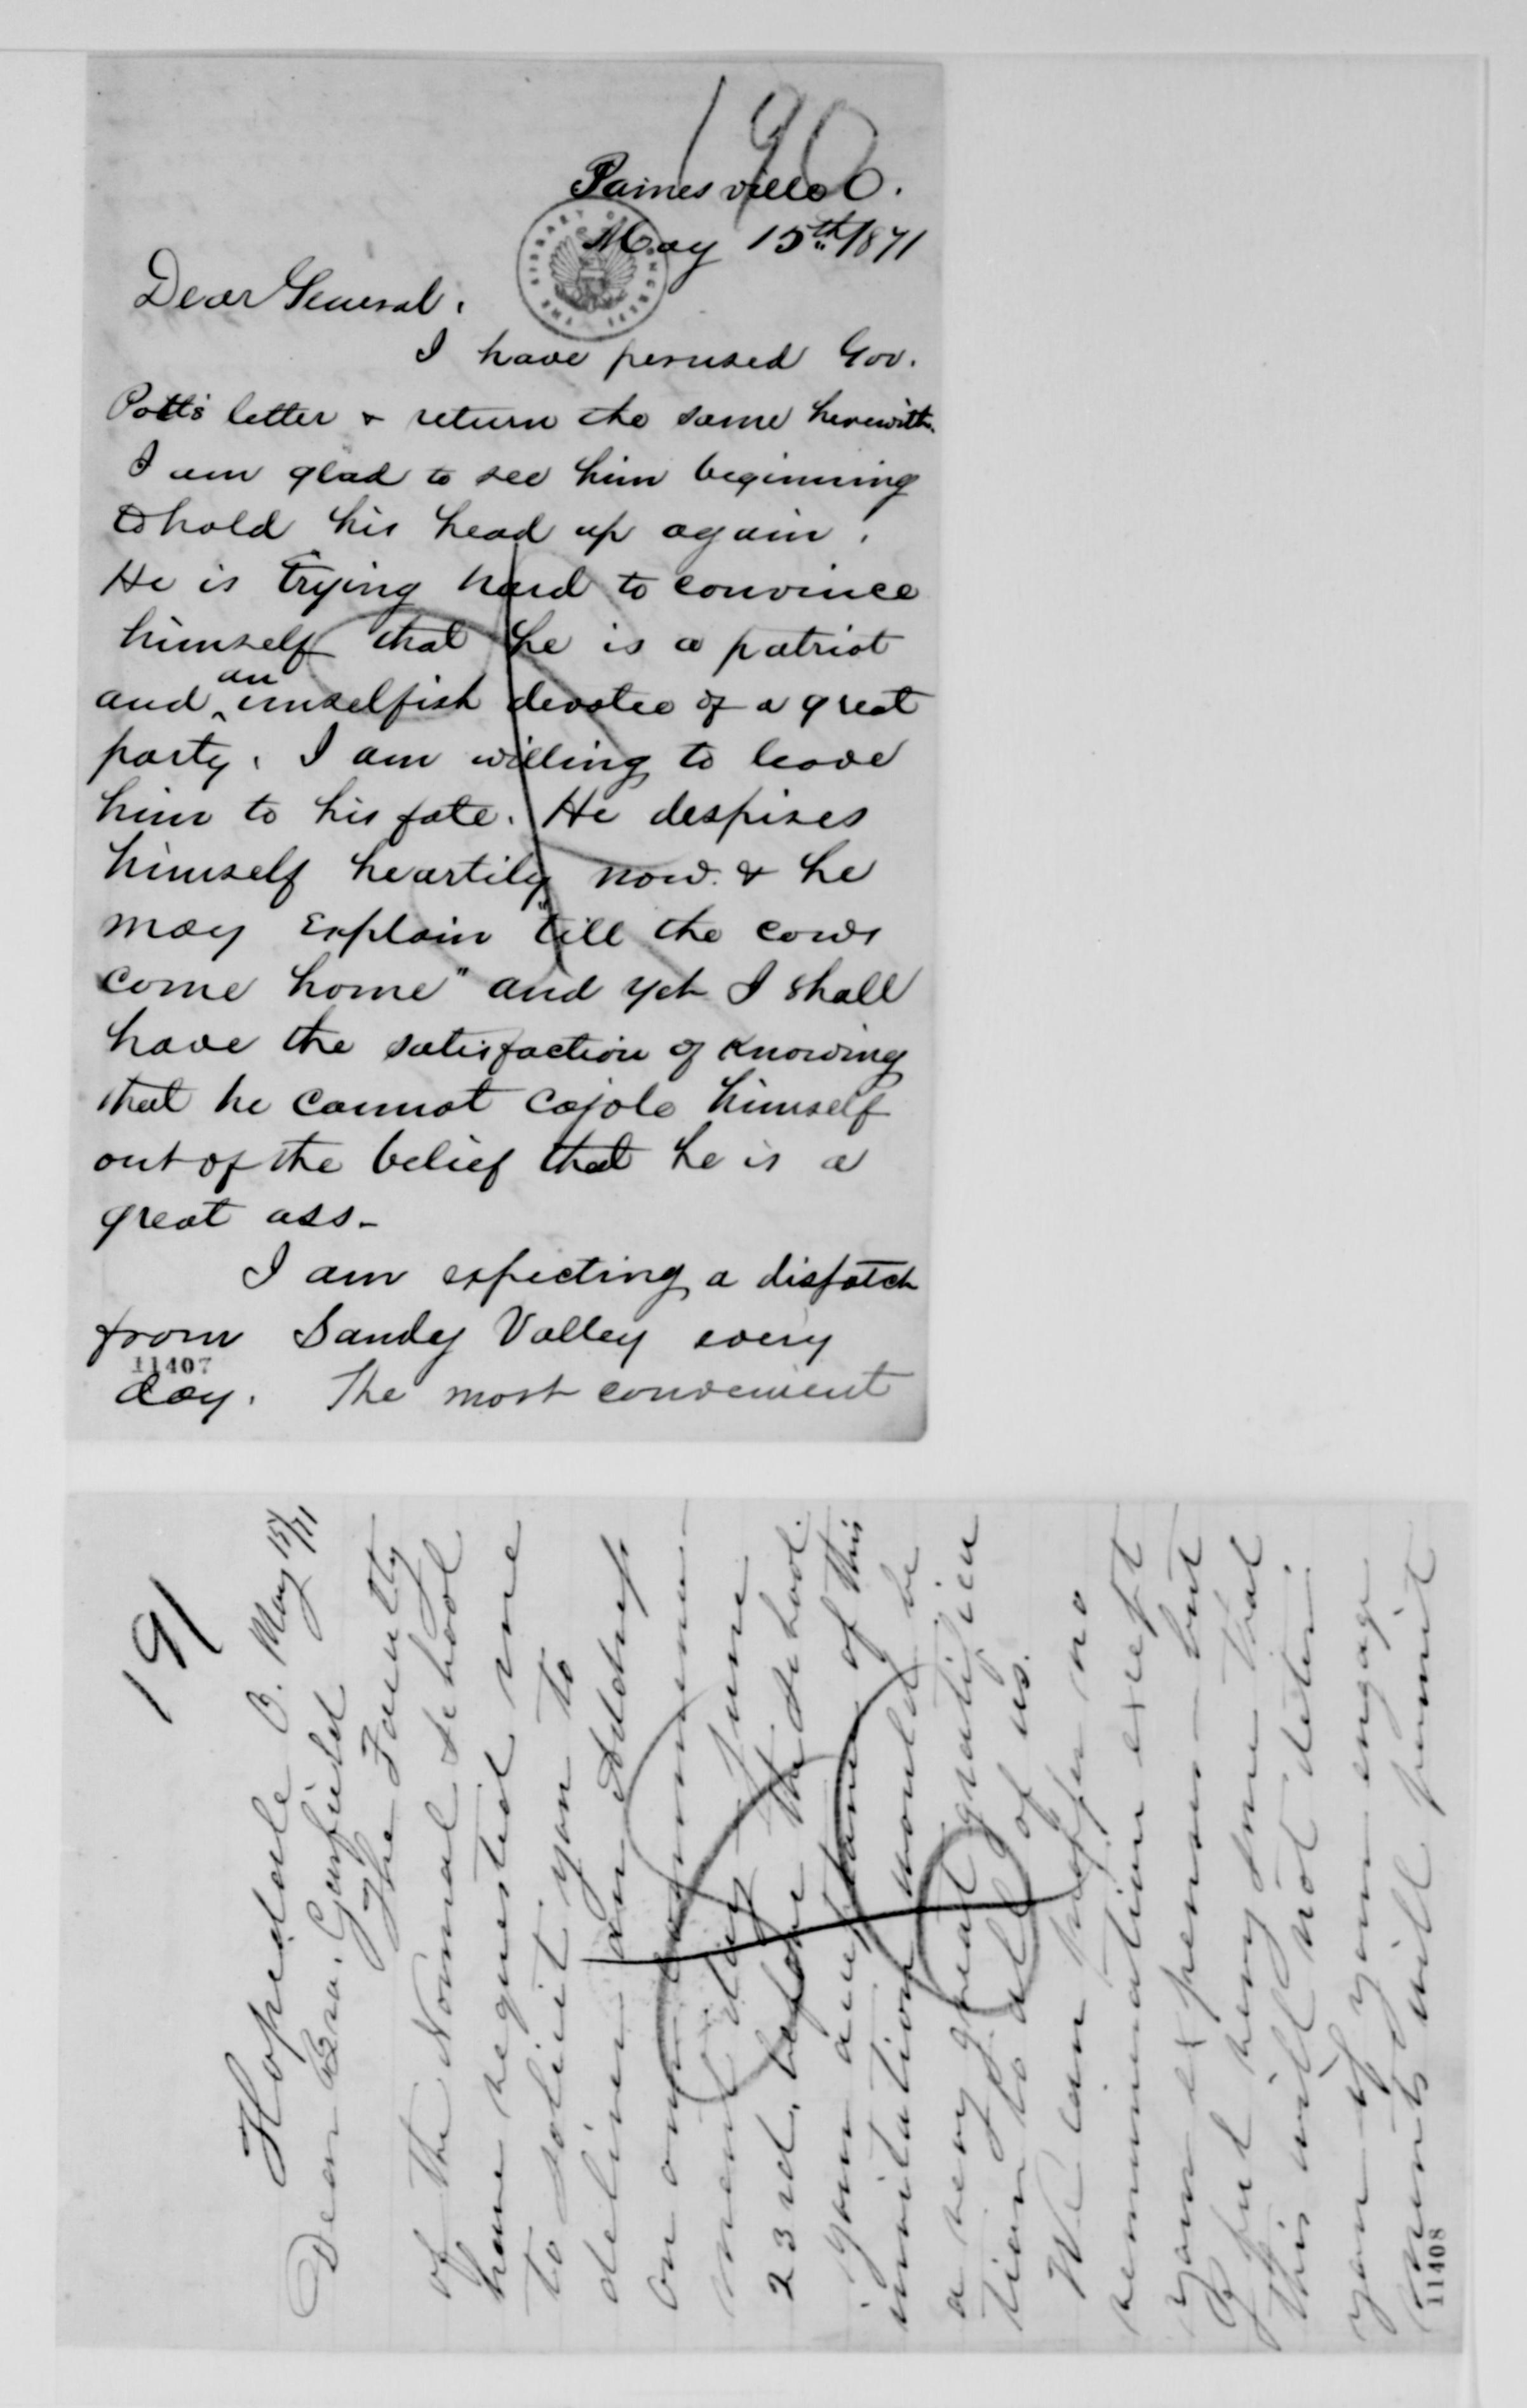 190
Painesville O.
May 15th 1871
Dear General.
I have perused Gov.
Potts letter & return the same herewith.
I am glad to see him beginning
to hold his head up again.
He is trying hard to convince
himself that he is a patriot
and an unselfish devotee of a great
party. I am willing to leave
him to his fate. He despises
himself heartily now. & he
may explain "till the cows
come home" and yet I shall
have the satisfaction of knowing
that he cannot cajole himself
out of the belief that he is a
great ass-
I am expecting a dispatch
from Sandy Valley every
11407
day. The most convenient
191
Hopedale O. May 15/71
Dear Bro. Garfield
The Faculty
of the Normal School
have requested me
to solicit you to
deliver an Address
on our commence-
ment day June
23rd, before the school.
Your acceptance of this
invitation would be
a very great gratifica
tion to all of us.
We can proffer no
remuneration except
your expenses - but
I feel very sure that
this will not deter
you if your engage
ments will permit
11408